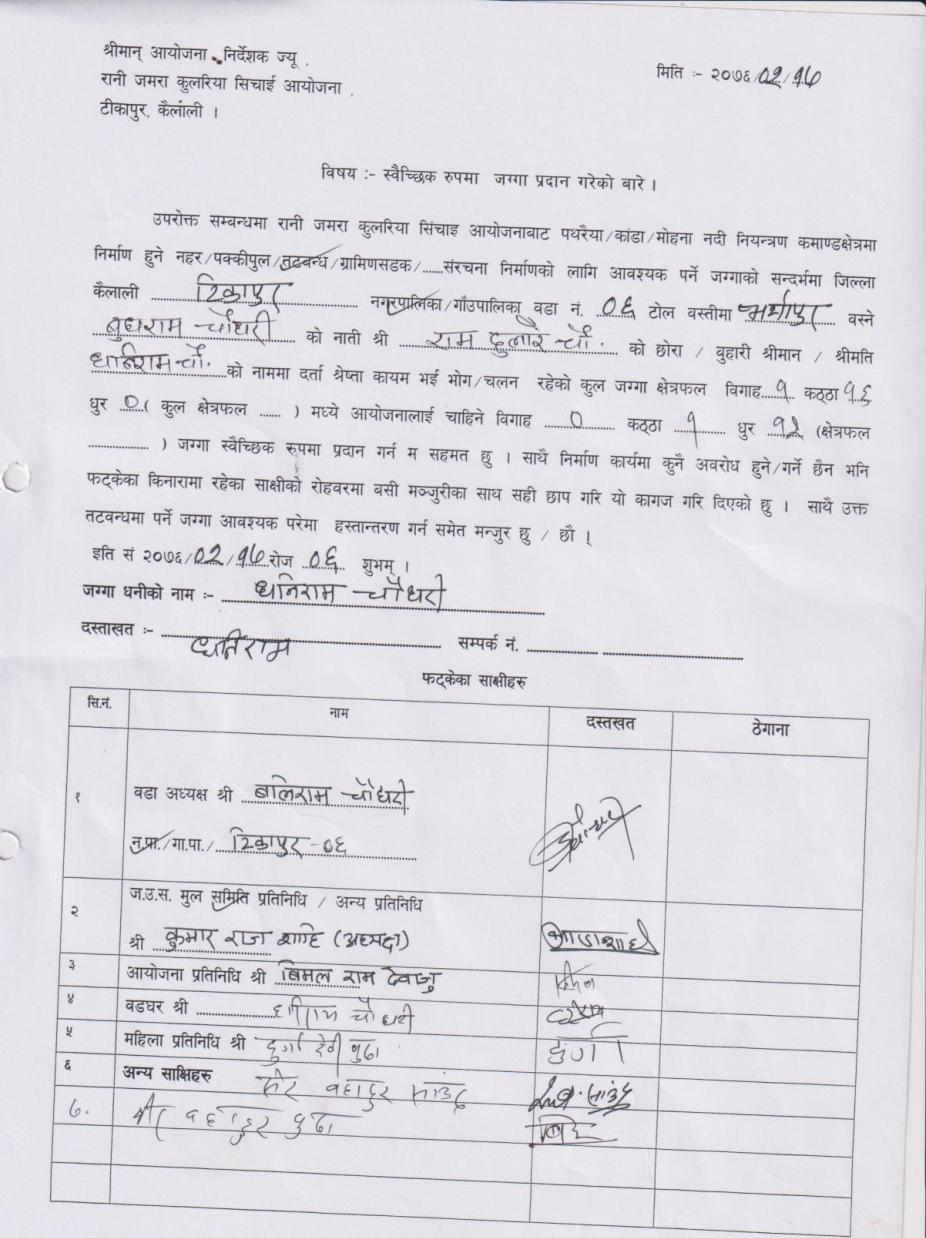 श्रीमान् आयोजना निर्देशक ज्यू ,
रानी जमरा कुलरिया सिचाई आयोजना ,
टीकापुर, कैलाली ।
मिति :- २०७६/02/16
विषय :- स्वैच्छिक रुपमा जग्गा प्रदान गरेको बारे ।
उपरोक्त सम्बन्धमा रानी जमरा कुलरिया सिंचाइ आयोजनाबाट पथरैया/कांडा/मोहना नदी नियन्त्रण कमाण्डक्षेत्रमा
निर्माण हुने नहर/पक्कीपुल/तुटवन्ध/ग्रामिणसडक/......संरचना निर्माणको लागि आवश्यक पर्ने जग्गाको सन्दर्भमा जिल्ला
कैलाली टिकापुर नगरपालिका/गाँउपालिका वडा नं. ०६ टोल वस्तीमा वस्ने
बुधराम चौधरी को नाती श्री राम दुलारे चौ. को छोरा / बुहारी श्रीमान / श्रीमति
धनिराम चौ. को नाममा दर्ता श्रेष्ता कायम भई भोग/चलन रहेको कुल जग्गा क्षेत्रफल विगाह १ कठ्ठा १६
धुर ०( कुल क्षेत्रफल ...... ) मध्ये आयोजनालाई चाहिने विगाह ० कठ्ठा १ धुर १२ (क्षेत्रफल
................ ) जग्गा स्वैच्छिक रुपमा प्रदान गर्न म सहमत छु । साथै निर्माण कार्यमा कुनै अवरोध हुने/गर्ने छैन भनि
फट्केका किनारामा रहेका साक्षीको रोहवरमा बसी मञ्जुरीका साथ सही छाप गरि यो कागज गरि दिएको छु । साथै उक्त
तटवन्धमा पर्ने जग्गा आवश्यक परेमा हस्तान्तरण गर्न समेत मन्जुर छु / छौ ।
इति सं २०७६/02/16 रोज ०६ शुभम् ।
जग्गा धनीको नाम :- धनिराम चौधरी
दस्ताखत :- धनिराम सम्पर्क नं. ................
फट्केका साक्षीहरु
सि.नं. नाम दस्तखत ठेगाना
१ वडा अध्यक्ष श्री बलिराम चौधरी
न.पा./गा.पा./ टिकापुर -०६
२ ज.उ.स. मुल समिति प्रतिनिधि / अन्य प्रतिनिधि
श्री कुमार राज शाहि (अध्यक्ष)
३ आयोजना प्रतिनिधि श्री बिमल राम देवाजु
४ वडघर श्री चौधरी
५ महिला प्रतिनिधि श्री दुर्गा देवी बुढा दुर्गा
६ अन्य साक्षिहरु वहादुर साउद
७. वहादुर बुढा